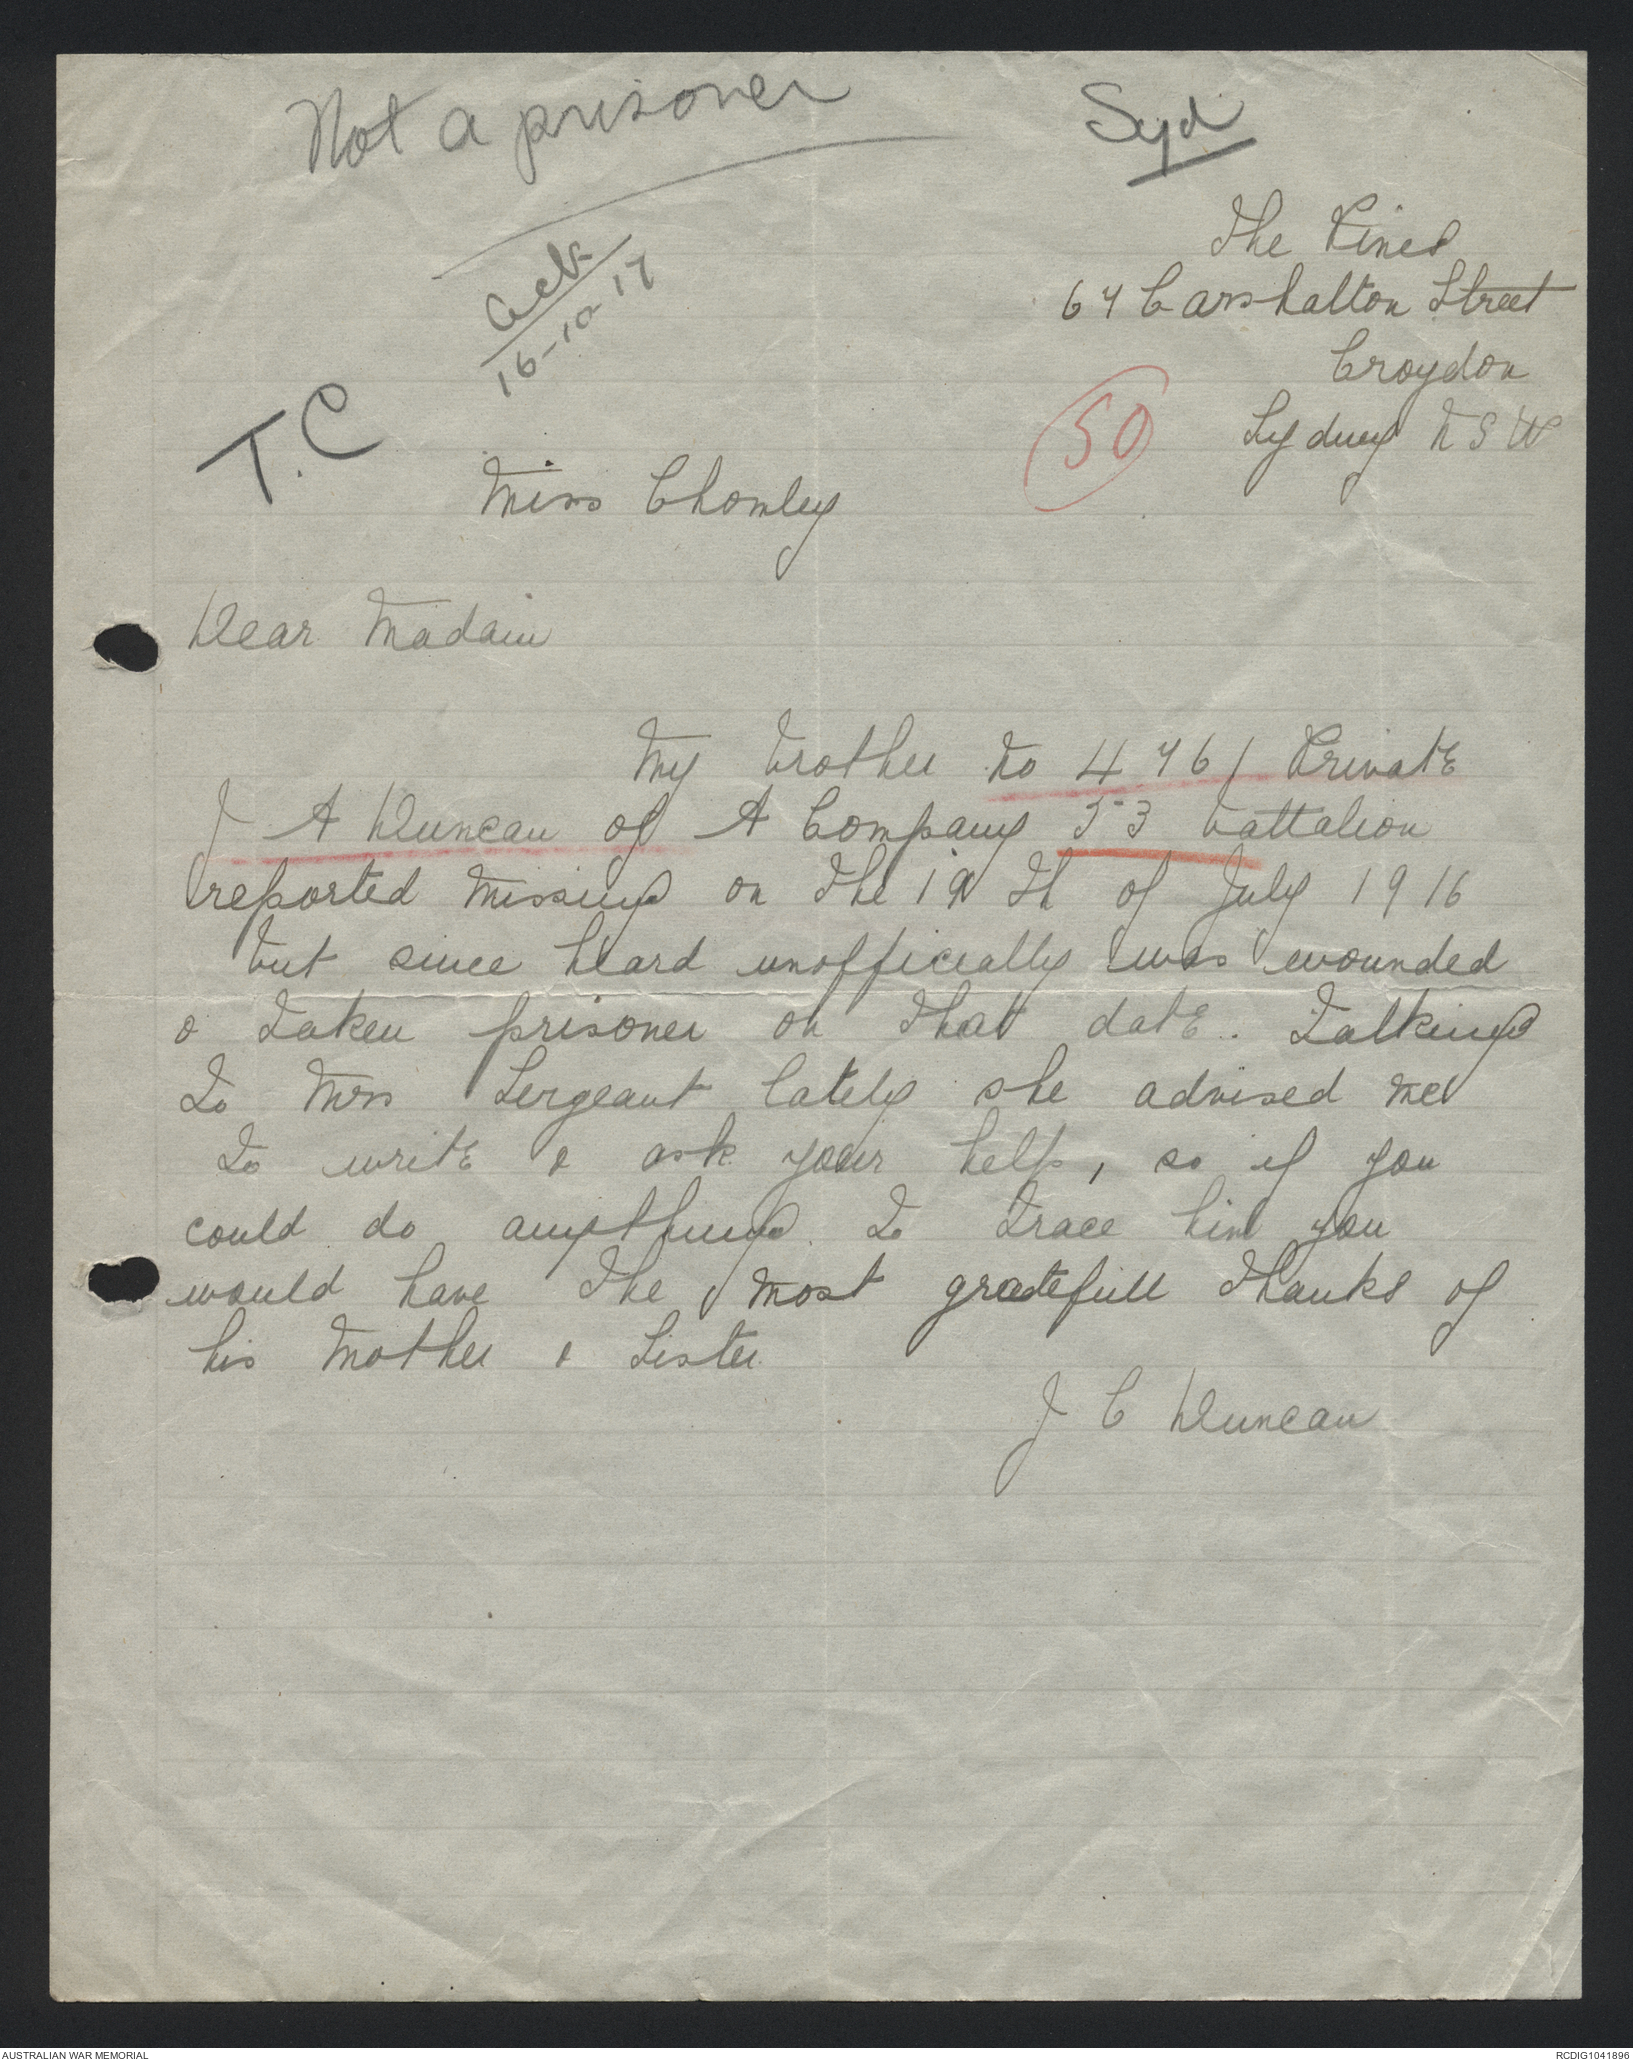 Not a prisoner
Syd
Ack
16-10-17
The Pines
67 Carshalton Street
Croydon
Sydney N S W
50
T.C
Miss Chomley
Dear Madam
My brother No 4761 Private
J A Duncan of A Company 53 battalion
reported missing on the 19 th of July 1916
but since heard unofficially was wounded
& taken prisoner on that date. Talking
to Mrs Sergeant lately she advised me
to write & ask your help, so if you
could do anything to trace him you
would have the most gratefull thanks of
his Mother & Sister
J C Duncan
AUSTRALIAN WAR MEMORIAL
RCDIG1041896